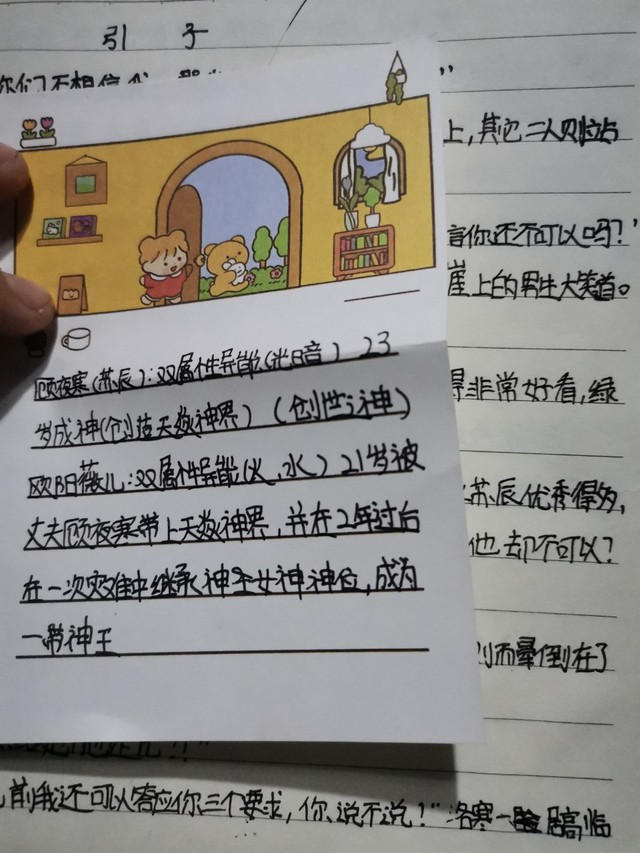 引 子
你们不相信
上，其它二人则站
言你还不可以吗？’
崖上的男生大笑道。
得非常好看，绿
苏辰优秀得多，
他却不可以？
而晕倒在了
前我还可以答应你三个要求，你说不说！“洛寒一脸居高临
顾夜寒（苏辰）：双属性异能（光日音） 23
岁成神（创技天数神界）（创世之神）
欧阳薇儿：双属性异能（火，水）21岁被
丈夫顾夜寒带上天数神界，并在2年过后
在一次灾难中继承神圣女神神位，成为
一带神王